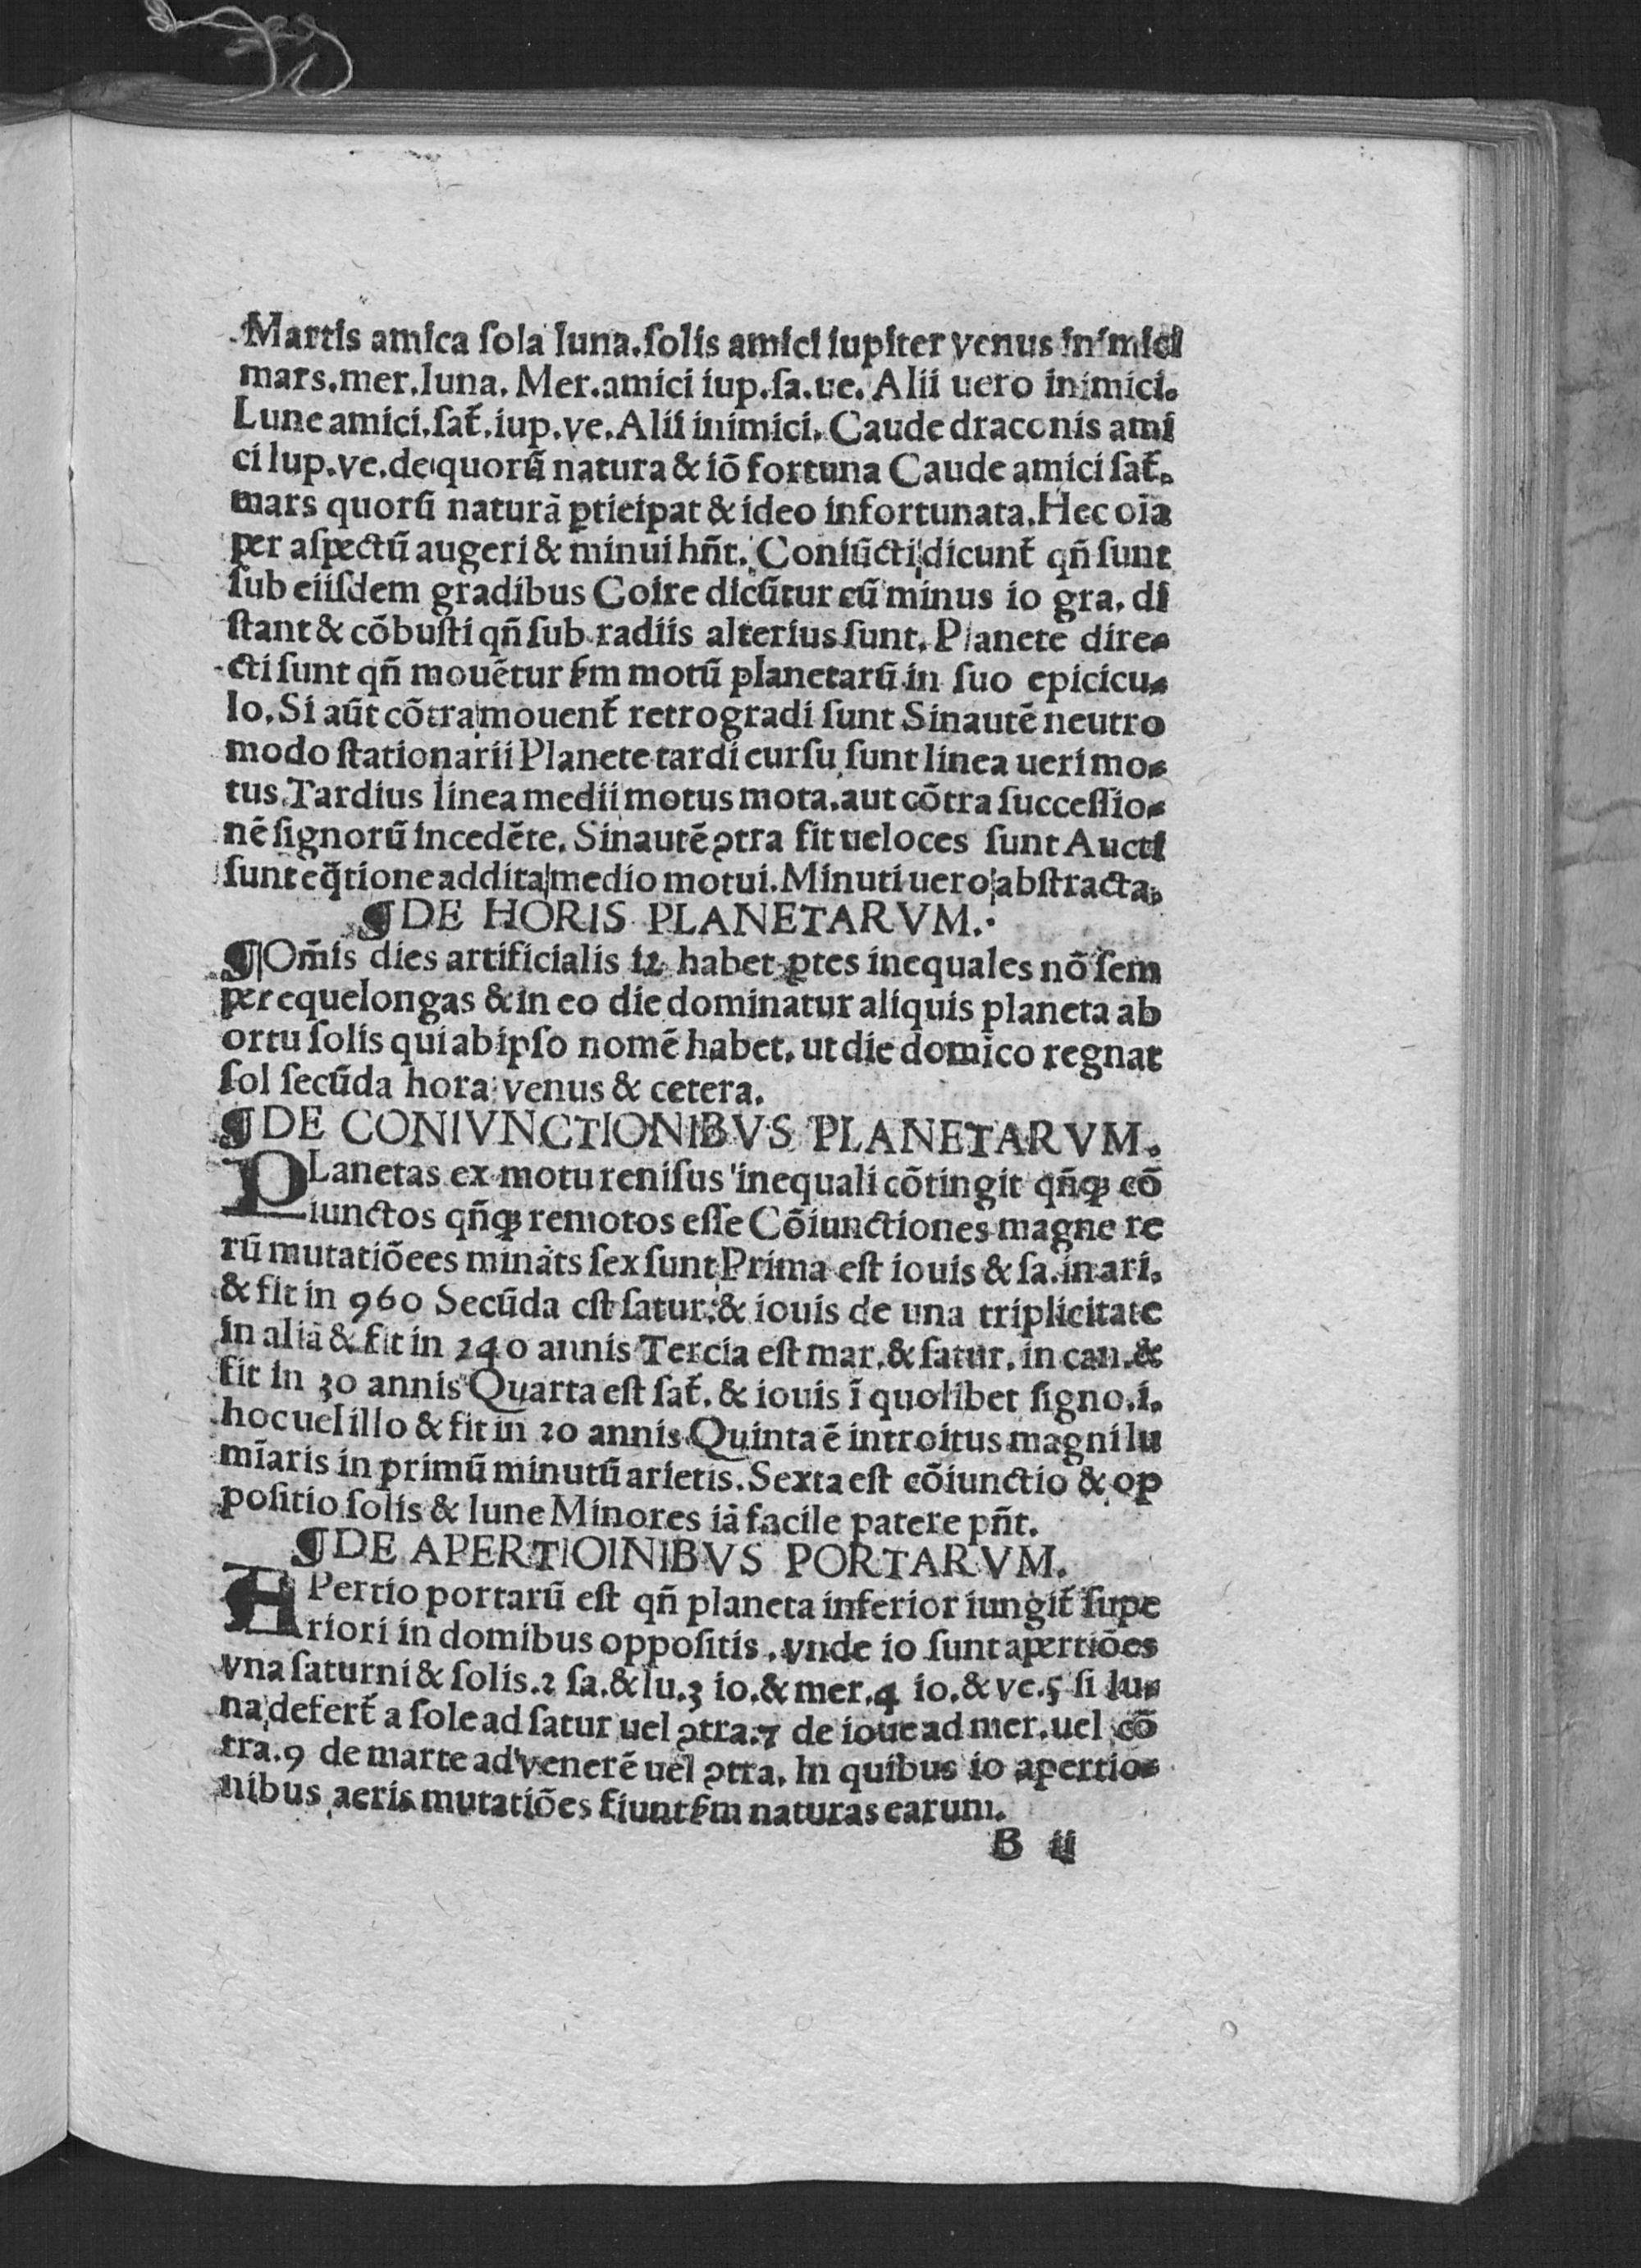 Martis amica ſola luna.ſolis amici iupiter venus inimici
mars.mer.luna. Mer.amici iup.ſa.ue. Alii uero inimici.
Lune amici.ſat̃.iup.ve.Alii inimici. Caude draconis ami
ci Iup.ve.de quorũ natura & iõ fortuna Caude amici ſat̃.
mars quorũ naturã ꝑticipat & ideo infortunata.Hec oĩa
per aſpectũ augeri & minui hñt. Coniũcti dicunt̃ qñ ſunt
ſub eiiſdem gradibus Coire dicũtur cũ minus io gra. di
ſtant & cõbuſti qñ ſub radiis alterius ſunt. Planete dire⸗
cti ſunt qñ mouẽtur ẜm motũ planetarũ in ſuo epicicu⸗
lo. Si aũt cõtra mouent̃ retrogradi ſunt Sinautẽ neutro
modo ſtationarii Planete tardi curſu ſunt linea ueri mo⸗
tus.Tardius linea medii motus mota.aut cõtra ſucceſſio⸗
nẽ ſignorũ incedẽte. Sinautẽ ꝯtra fit ueloces ſunt Aucti
ſunt eq̃tione addita medio motui.Minuti uero abſtracta.
¶DE HORIS PLANETARVM.
¶Om̃is dies artificialis 12 habet ꝑtes inequales nõ ſem
per equelongas & in eo die dominatur aliquis planeta ab
ortu ſolis qui ab ipſo nomẽ habet. ut die domĩco regnat
ſol ſecũda hora venus & cetera.
¶DE CONIVNCTIONIBVS PLANETARVM.
PLanetas ex motu reniſus inequali cõtingit qñqꝫ cõ
iunctos qñqꝫ remotos eſſe Cõiunctiones magne re
rũ mutatiõees minãts ſex ſunt Prima eſt iouis & ſa.in ari.
& fit in 960 Secũda eſt ſatur.& iouis de una triplicitate
in aliã & fit in 240 annis Tercia eſt mar.& ſatur. in can.&
fit in 30 annis Quarta eſt ſat̃. & iouis ĩ quolibet ſigno.i.
hoc uel illo & fit in 20 annis Quinta ẽ introitus magni lu
mĩaris in primũ minutũ arietis. Sexta eſt cõiunctio & op
poſitio ſolis & lune Minores iã facile patere pñt.
¶DE APERTIOINIBVS PORTARVM.
APertio portarũ eſt qñ planeta inferior iungit̃ ſupe
riori in domibus oppoſitis. vnde io ſunt apertiões
vna ſaturni & ſolis.2 ſa.& lu.3 io.& mer.4 io.& ve.5 ſi lu⸗
na defert̃ a ſole ad ſatur uel ꝯtra.7 de ioue ad mer.uel cõ
tra.9 de marte ad venerẽ uel ꝯtra. In quibus io apertio⸗
nibus aeris mutatiões fiunt ẜm naturas earum.
B ii